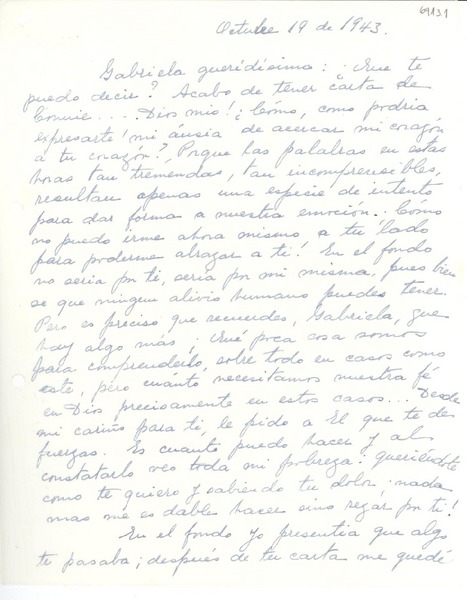 69131
Octubre 19 de 1943.
Gabriela queridísima: ¿Que te
puedo decir? Acabo de tener carta de
Connie.... Dios mio! ¿Cómo, como podria
expresarte mi ánsia de acercar mi corazón
a tu corazón?, Porque las palabras en estas
horas tan tremendas, tan incomprensibles,
resultan apenas una especie de intento
para dar forma a nuestra emoción.. Cómo
no puedo irme ahora mismo a tu lado
para poderme abrazar a ti! En el fondo
no seria por ti, seria por mi misma, pues bien
se que ningun alivio humano puedes tener.
Pero es preciso que recuerdes, Gabriela, que
hay algo mas; ¡Qué poca cosa somos
para comprenderlo, sobre todo en casos como
este, pero cuanto necesitamos nuestra fé
en Dios precisamente en estos casos... Desde
mi cariño para ti, le pido a El que te de
fuerzas. Es cuanto puedo hacer y al
constatarlo veo toda mi pobreza: queriéndote
como te quiero y sabiendo tu dolor, nada
mas me es dable hacer sino rezar por ti!
En el fondo yo presentia que algo
te pasaba; después de tu carta me quedé